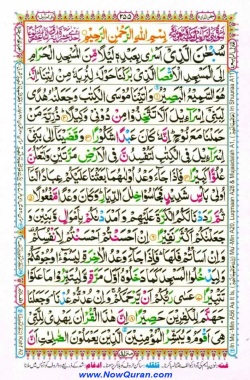 ٢٥٥
بِسْمِ اللهِ الرَّحْمٰنِ الرَّحِيْمِ
سُبْحٰنَ الَّذِيْٓ اَسْرٰى بِعَبْدِهٖ لَيْلًا مِّنَ الْمَسْجِدِ الْحَرَامِ
اِلَى الْمَسْجِدِ الْاَقْصَا الَّذِيْ بٰرَكْنَا حَوْلَهٗ لِنُرِيَهٗ مِنْ اٰيٰتِنَا ؕ اِنَّهٗ
هُوَ السَّمِيْعُ الْبَصِيْرُ وَاٰتَيْنَا مُوْسَى الْكِتٰبَ وَجَعَلْنٰهُ هُدًى
لِّبَنِيْٓ اِسْرَآءِيْلَ اَلَّا تَتَّخِذُوْا مِنْ دُوْنِيْ وَكِيْلًا ذُرِّيَّةَ مَنْ
حَمَلْنَا مَعَ نُوْحٍ ؕ اِنَّهٗ كَانَ عَبْدًا شَكُوْرًا وَقَضَيْنَآ اِلٰى بَنِيْٓ
اِسْرَآءِيْلَ فِي الْكِتٰبِ لَتُفْسِدُنَّ فِي الْاَرْضِ مَرَّتَيْنِ وَلَتَعْلُنَّ
عُلُوًّا كَبِيْرًا فَاِذَا جَآءَ وَعْدُ اُوْلٰىهُمَا بَعَثْنَا عَلَيْكُمْ عِبَادًا لَّنَآ
اُولِيْ بَاْسٍ شَدِيْدٍ فَجَاسُوْا خِلٰلَ الدِّيَارِ ؕ وَكَانَ وَعْدًا مَّفْعُوْلًا
ثُمَّ رَدَدْنَا لَكُمُ الْكَرَّةَ عَلَيْهِمْ وَاَمْدَدْنٰكُمْ بِاَمْوَالٍ وَّبَنِيْنَ وَ
جَعَلْنٰكُمْ اَكْثَرَ نَفِيْرًا اِنْ اَحْسَنْتُمْ اَحْسَنْتُمْ لِاَنْفُسِكُمْ وَ
اِنْ اَسَاْتُمْ فَلَهَا ؕ فَاِذَا جَآءَ وَعْدُ الْاٰخِرَةِ لِيَسُوْٓءٗا وُجُوْهَكُمْ
وَلِيَدْخُلُوا الْمَسْجِدَ كَمَا دَخَلُوْهُ اَوَّلَ مَرَّةٍ وَّلِيُتَبِّرُوْا مَا عَلَوْا
تَتْبِيْرًا عَسٰى رَبُّكُمْ اَنْ يَّرْحَمَكُمْ ۚ وَاِنْ عُدْتُّمْ عُدْنَا ۘ وَجَعَلْنَا
جَهَنَّمَ لِلْكٰفِرِيْنَ حَصِيْرًا اِنَّ هٰذَا الْقُرْاٰنَ يَهْدِيْ لِلَّتِيْ
هِيَ اَقْوَمُ وَيُبَشِّرُ الْمُؤْمِنِيْنَ الَّذِيْنَ يَعْمَلُوْنَ الصّٰلِحٰتِ اَنَّ
www.NowQuran.com